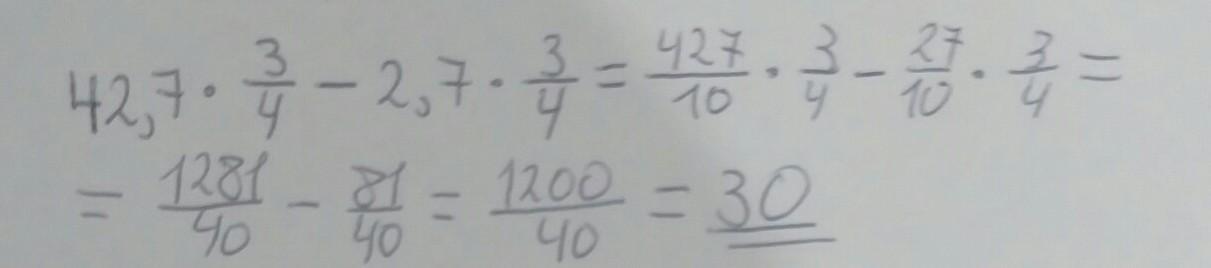 42,7 · 3/4 − 2,7 · 3/4 = 427/10 · 3/4 − 27/10 · 3/4 =
= 1281/40 − 81/40 = 1200/40 = 30